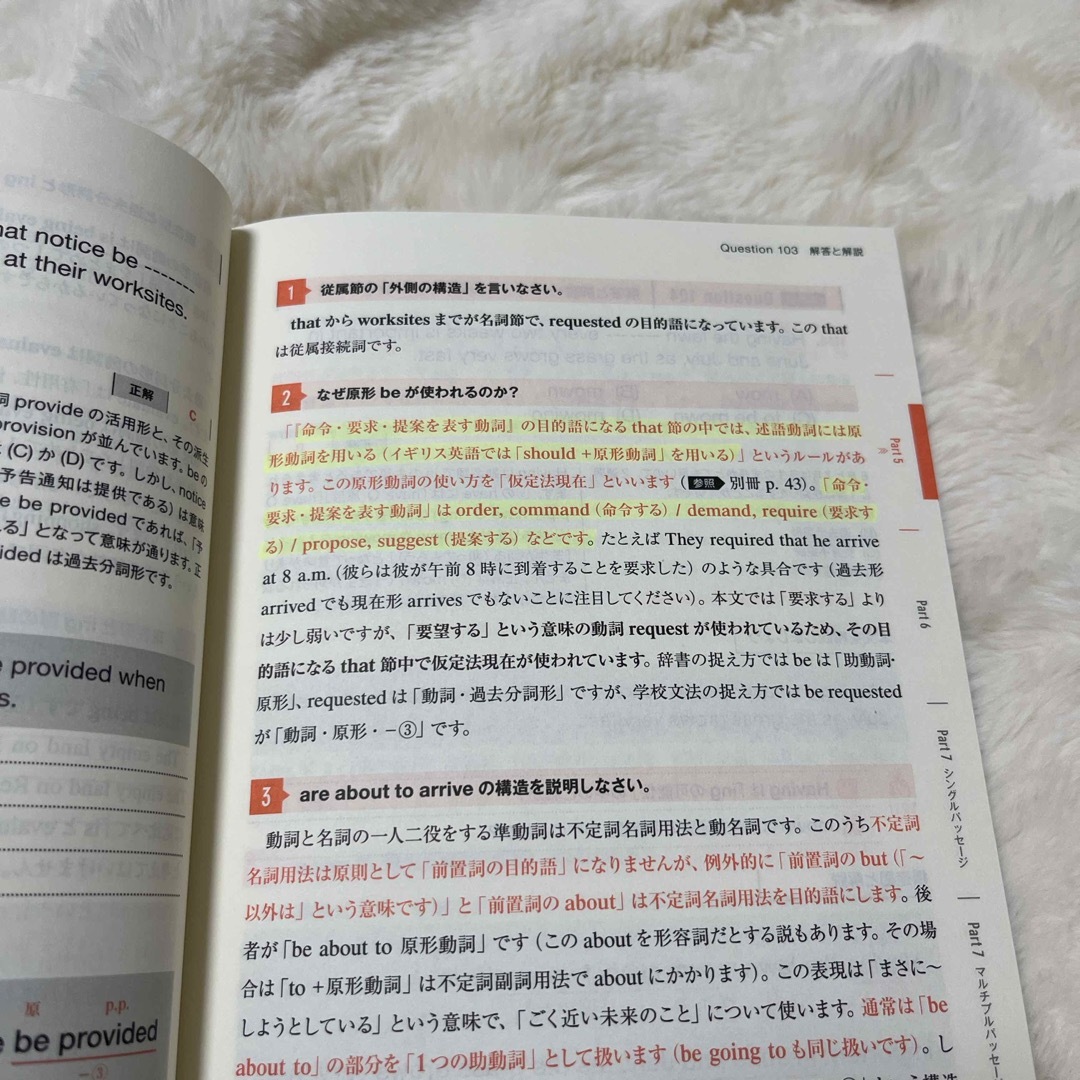 hat notice be -------
at their worksites.
正解
C
詞 provide の活用形と、その派生
provision が並んでいます。be の
(C) か (D) です。しかし、notice
予告通知は提供である) は意味
e be provided であれば、「予
る」となって意味が通ります。正
vided は過去分詞形です。
e provided when
s.
原 p.p.
e be provided
−③
Question 103 解答と解説
1 従属節の「外側の構造」を言いなさい。
that から worksites までが名詞節で、requested の目的語になっています。この that
は従属接続詞です。
2 なぜ原形 be が使われるのか?
「『命令・要求・提案を表す動詞』の目的語になる that 節の中では、述語動詞には原
形動詞を用いる (イギリス英語では「should +原形動詞」を用いる)」というルールがあ
ります。この原形動詞の使い方を「仮定法現在」といいます (参照 別冊 p. 43)。「命令・
要求・提案を表す動詞」は order, command (命令する) / demand, require (要求す
る) / propose, suggest (提案する) などです。たとえば They required that he arrive
at 8 a.m. (彼らは彼が午前 8 時に到着することを要求した) のような具合です (過去形
arrived でも現在形 arrives でもないことに注目してください)。本文では「要求する」より
は少し弱いですが、「要望する」という意味の動詞 request が使われているため、その目
的語になる that 節中で仮定法現在が使われています。辞書の捉え方では be は「助動詞・
原形」、requested は「動詞・過去分詞形」ですが、学校文法の捉え方では be requested
が「動詞・原形・−③」です。
3 are about to arrive の構造を説明しなさい。
動詞と名詞の一人二役をする準動詞は不定詞名詞用法と動名詞です。このうち不定詞
名詞用法は原則として「前置詞の目的語」になりませんが、例外的に「前置詞の but (「〜
以外は」という意味です)」と「前置詞の about」は不定詞名詞用法を目的語にします。後
者が「be about to 原形動詞」です (この about を形容詞だとする説もあります。その場
合は「to +原形動詞」は不定詞副詞用法で about にかかります)。この表現は「まさに〜
しようとしている」という意味で、「ごく近い未来のこと」について使います。通常は「be
about to」の部分を「1 つの助動詞」として扱います (be going to も同じ扱いです)。し
Part 5
Part 6
Part 7 シングルパッセージ
Part 7 マルチプルパッセー